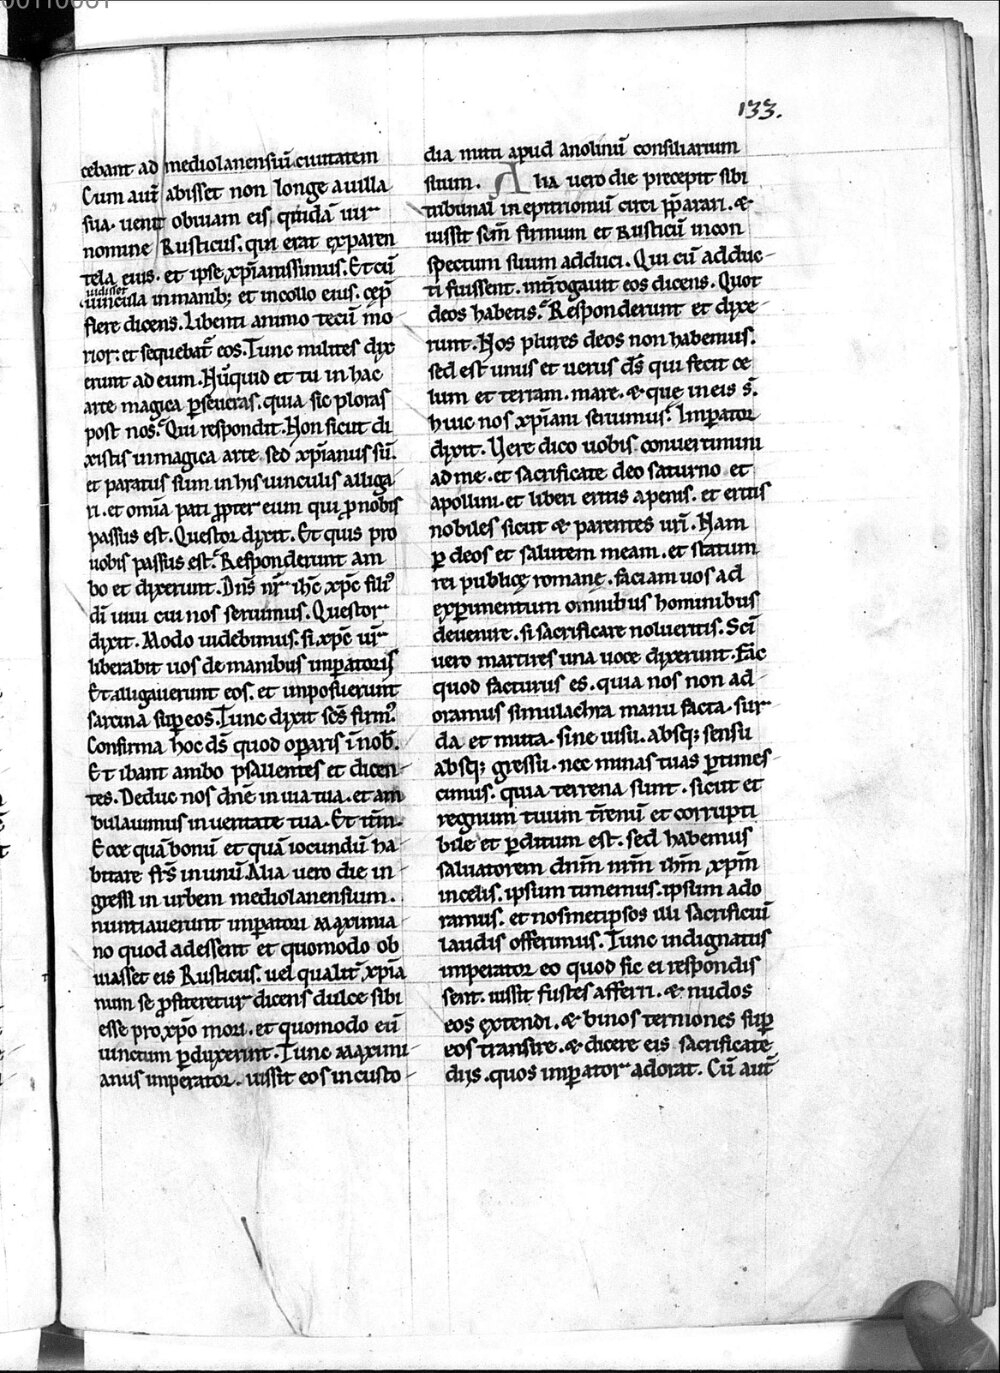 133.
cebant ad mediolanensiū ciuitatem
Cum aut̄ abisset non longe a uilla
sua. uenit obuiam eis quidā uir
nomine Rusticus. qui erat ex paren
tela eius. et ipse xp̄ianissimus. Et cū
uidisset
uincula in manib; et in collo eius. cep̄
flere dicens. Libenti animo tecū mo
rior: et sequebat̄ eos. Tunc milites dix
erunt ad eum. Nūquid et tu in hac
arte magica p̄seueras. quia sic ploras
post nos? Qui respondit. Non sicut di
xistis in magica arte sed xp̄ianus sū.
et paratus sum in his uinculis alliga
ri. et om̄ia pati p̄pter eum qui p̄ nobis
passus est. Questor dixit. Et quis pro
uobis passus est? Responderunt am
bo et dixerunt. Dn̄s nr̄ ih̄c xp̄c fili᾽
dī uiui cui nos seruimus. Questor
dixit. Modo uidebimus. si xp̄c ur̄
liberabit uos de manibus imp̄atoris
Et alligauerunt eos. et imposuerunt
sarcina sup̄ eos. Tunc dixit sc̄s firm᾽.
Confirma hoc ds̄ quod op̄aris ī nob̄.
Et ibant ambo psallentes et dicen
tes. Deduc nos dn̄e in uia tua. et am
bulauimus in ueritate tua. Et itēm.
Ecce quā bonū et quā iocundū ha
bitare frs̄ in unū Alia uero die in
gressi in urbem mediolanensium.
nuntiauerunt imp̄atori maximia
no quod adessent et quomodo ob
uiasset eis Rusticus. uel qualit̄ xp̄ia
num se p̄fiteretur dicens dulce sibi
esse pro xp̄o mori. et quomodo eū
uinctum p̄duxerint. Tunc maximi
anus imperator. iussit eos in custo
dia mitti apud anolinū consiliarium
suum. Alia uero die precepit sibi
tribunal in epitriomū circi p̄parari. &
iussit scm̄ firmum et Rusticū in con
spectum suum adduci. Qui cū adduc
ti fuissent. int̄rogauit eos dicens. Quot
deos habetis? Responderunt et dixe
runt. Nos plures deos non habemus.
sed est unus et uerus ds̄ qui fecit ce
lum et terram. mare. & que in eis s̄.
huic nos xp̄iani seruimus. Imp̄ator
dixit. Vere dico uobis conuertimini
ad me. et sacrificate deo saturno et
apollini. et liberi eritis a penis. et eritis
nobiles sicut & parentes uri̅. Nam
p̄ deos et salutem meam. et statum
rei publicę romanę. faciam uos ad
exp̄imentum omnibus hominibus
deuenire. si sacrificare nolueritis. Sc̄i
uero martires una uoce dixerunt. Fac
quod facturus es. quia nos non ad
oramus simulachra manu facta. sur
da et muta. sine uisu. absq; sensu
absq; gressu. nec minas tuas p̄times
cimus. quia terrena sunt. sicut et
regnum tuum t̄renū et corrupti
bile et p̄ditum est. sed habemus
saluatorem dn̄m nr̄m ih̄m xp̄m
in celis. ipsum timemus. ipsum ado
ramus. et nosmetipsos illi sacrificiū
laudis offerimus. Tunc indignatus
imperator eo quod sic ei respondis
sent. iussit fustes afferri. & nudos
eos extendi. & binos terniones sup̄
eos transire. & dicere eis sacrificate
diis. quos imp̄ator adorat. Cū aut̄